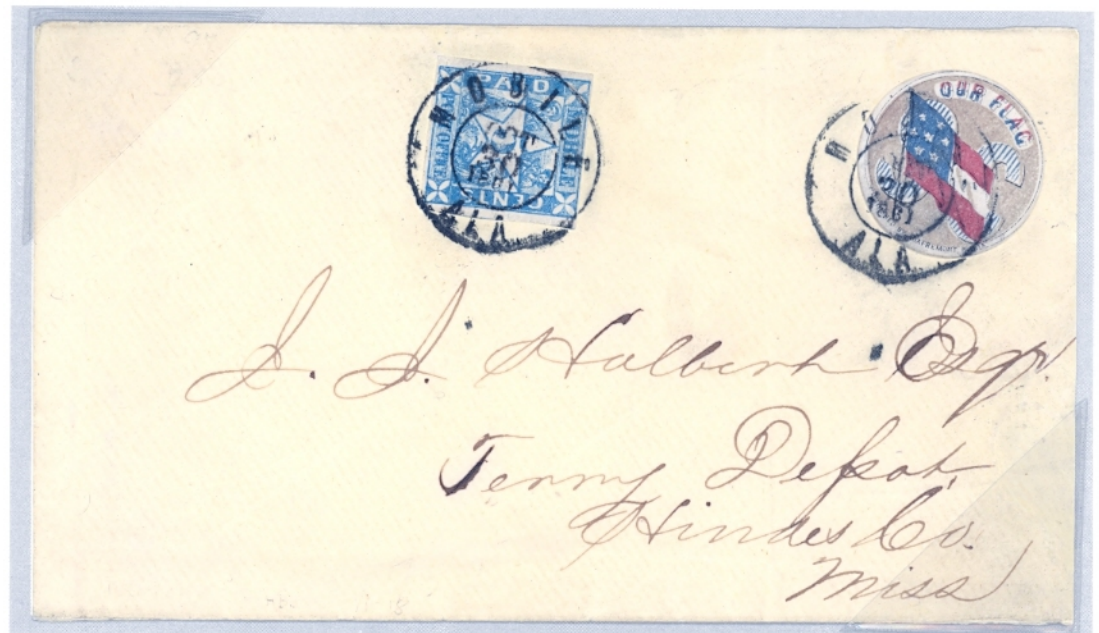 PAID
MOBILE
POST OFFICE
CENTS
MOBILE
OCT
20
1861
ALA
OUR FLAG
MO
20
1861
ALA
J. J. Halbert Esqr.
Terry Depot,
Hindes Co.
Miss